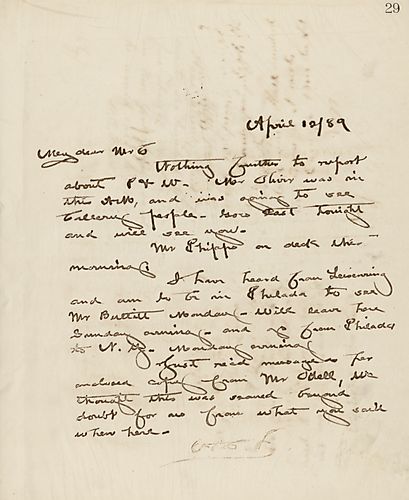 29
April 12/89
My dear Mr C
Nothing further to report
about P & W. Mr Oliver was in
this A.M., and was going to see
people - Goes East tonight
and will see you.
Mr Phipps on deck this
morning.
I have heard from Leisenring
and am to be in Philada to see
Mr Monday - Will leave here
Sunday evening - and from Philada
to N. Y. Monday evening
Just rec'd message as per
enclosed copy from Mr Odell, We
thought this was secured beyond
doubt for us from what you said
when here -